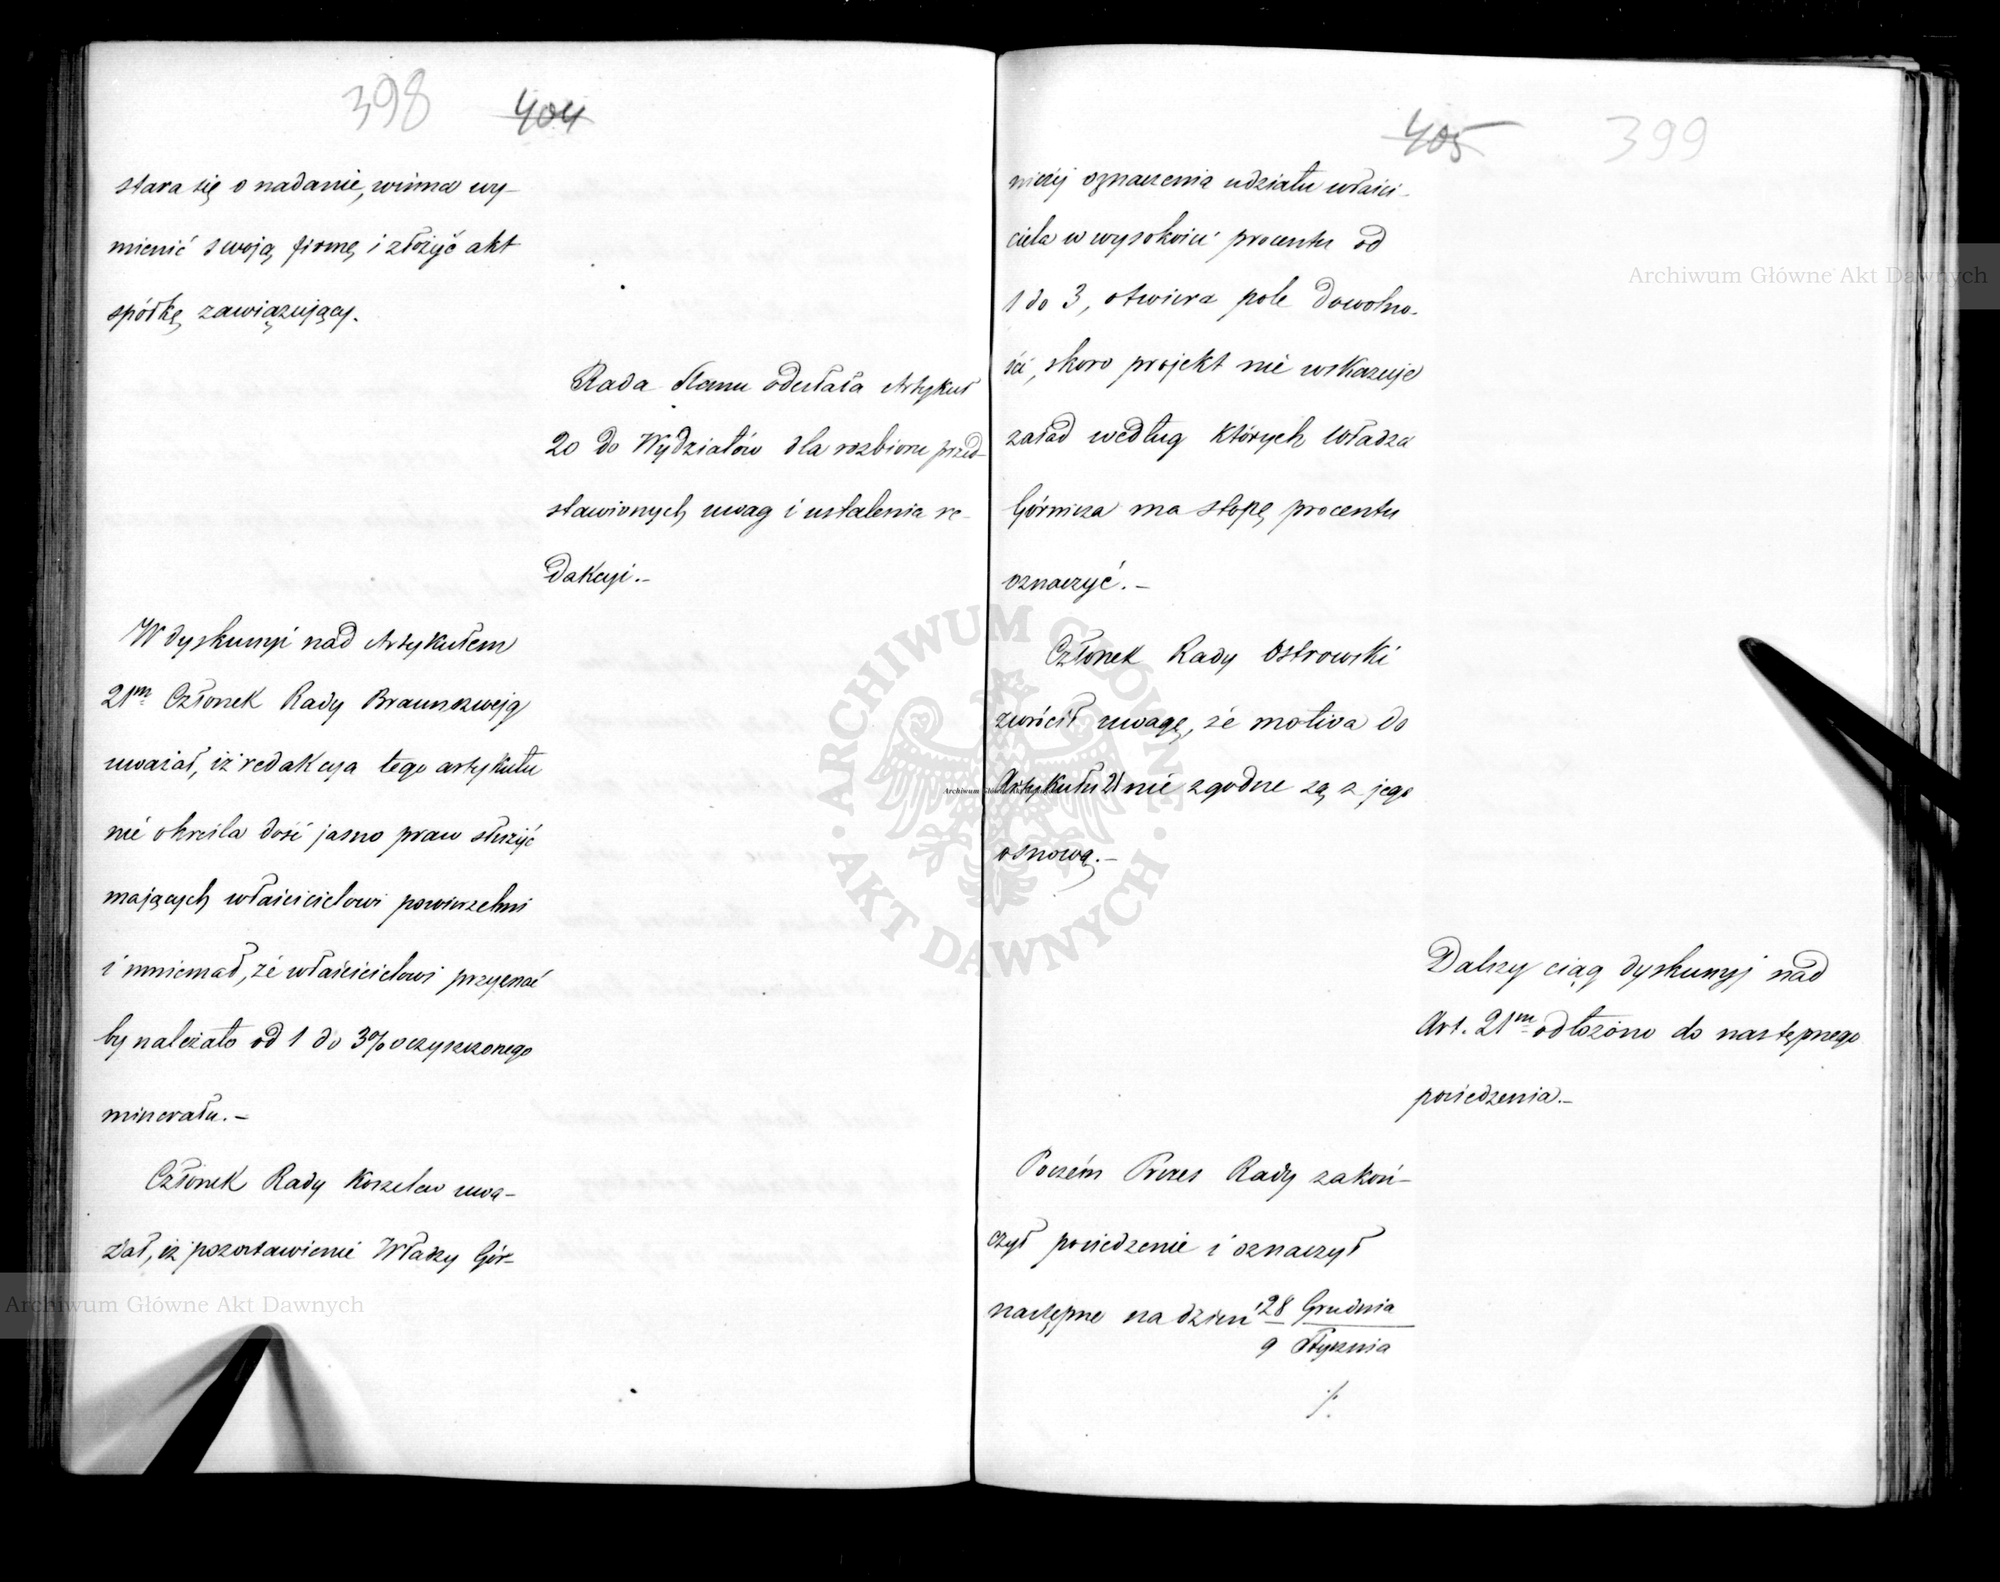 398 404
stara się o nadanie, winna wy-
mienić swoją firmę i złożyć akt
spółkę zawiązujący.
Rada Stanu odesłała Artykuł
20 do Wydziałów dla rozbioru przed-
stawionych uwag i ustalenia re-
dakcyi.-
W dyskussyi nad Artykułem
21m Członek Rady Braunszwejg
uważał, iż redakcya tego artykułu
nie określa dość jasno praw służyć
mających właścicielowi powierzchni
i mniemał, że właścicielowi przyznać
by należało od 1 do 3% oczyszczonego
minerału.-
Członek Rady Koszelew uwa-
żał, iż pozostawienie Władzy Gór-
405 399
niczej oznaczenia udziału właści-
ciela w wysokości procentu od
1 do 3, otwiera pole dowolno-
ści, skoro projekt nie wskazuje
zasad według których Władza
Górnicza ma stopę procentu
oznaczyć.-
Członek Rady Ostrowski
zwrócił uwagę, że motiva do
Artykułu 21 nie zgodne są z jego
osnową.-
Dalszy ciąg dyskussyj nad
Art. 21m odłożono do następnego
posiedzenia.-
Poczém Prezes Rady zakoń-
czył posiedzenie i oznaczył
następne na dzień 28 Grudnia
9 Stycznia
Archiwum Główne Akt Dawnych
Archiwum Główne Akt Dawnych
ARCHIWUM GŁÓWNE · AKT DAWNYCH ·